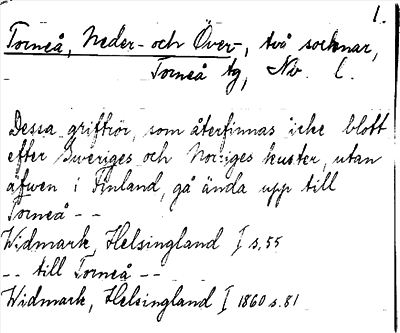 1.
Torneå, Neder- och Över-, två socknar,
Torneå tg, Nb. l.
Dessa griftrör, som återfinnas icke blott
efter Sweriges och Norriges kuster, utan
äfwen i Finland, gå ända upp till
Torneå - -
Widmark, Helsingland I s. 55
- - till Torneå - -
Widmark, Helsingland I 1860 s. 81